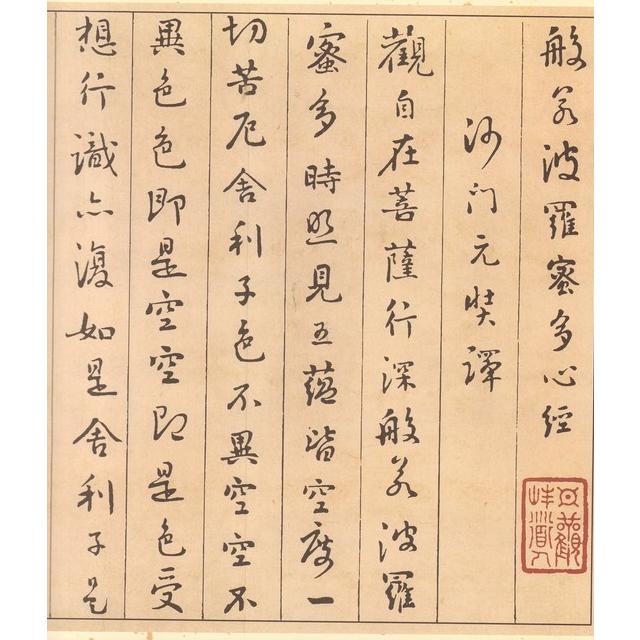 般若波羅蜜多心經
沙門元奘譯
觀自在菩薩行深般若波羅
蜜多時照見五蘊皆空度一
切苦厄舍利子色不異空空不
異色色即是空空即是色受
想行識亦復如是舍利子是